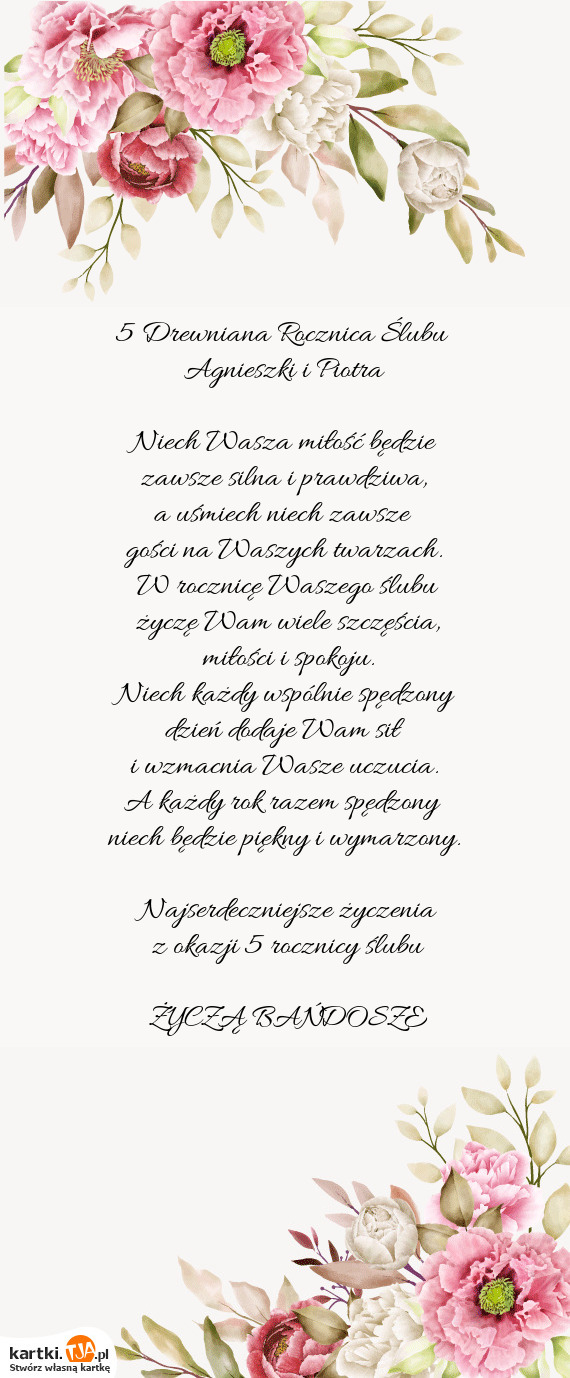 5 Drewniana Rocznica Ślubu
Agnieszki i Piotra
Niech Wasza miłość będzie
zawsze silna i prawdziwa,
a uśmiech niech zawsze
gości na Waszych twarzach.
W rocznicę Waszego ślubu
życzę Wam wiele szczęścia,
miłości i spokoju.
Niech każdy wspólnie spędzony
dzień dodaje Wam sił
i wzmacnia Wasze uczucia.
A każdy rok razem spędzony
niech będzie piękny i wymarzony.
Najserdeczniejsze życzenia
z okazji 5 rocznicy ślubu
ŻYCZĄ BAŃDOSZE
kartki.TJA.pl
Stwórz własną kartkę